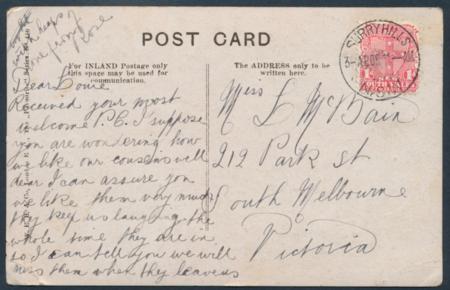 POST CARD
For INLAND Postage only
this space may be used for
communication.
The ADDRESS only to be
written here.
SURRY HILLS
N.S.W
love from
Rose
Dear Louie
Received your most
welcome P.C. I suppose
you are wondering how
we like our cousins well
dear I can assure you
we like them very much
they keep us laughing the
whole time they are in
so I can tell you we will
miss them when they leave us
Miss L McBain
212 Park st
South Melbourne
Victoria